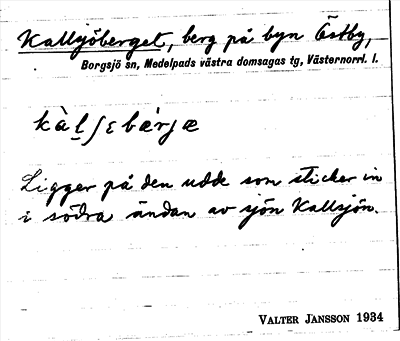 Kallsjöberget, berg på byn Östby,
Borgsjö sn, Medelpads västra domsagas tg, Västernorrl. l.
kàḷʃɛbæ̀rjæ
Ligger på den udde som sticker in
i södra ändan av sjön Kallsjön.
VALTER JANSSON 1934